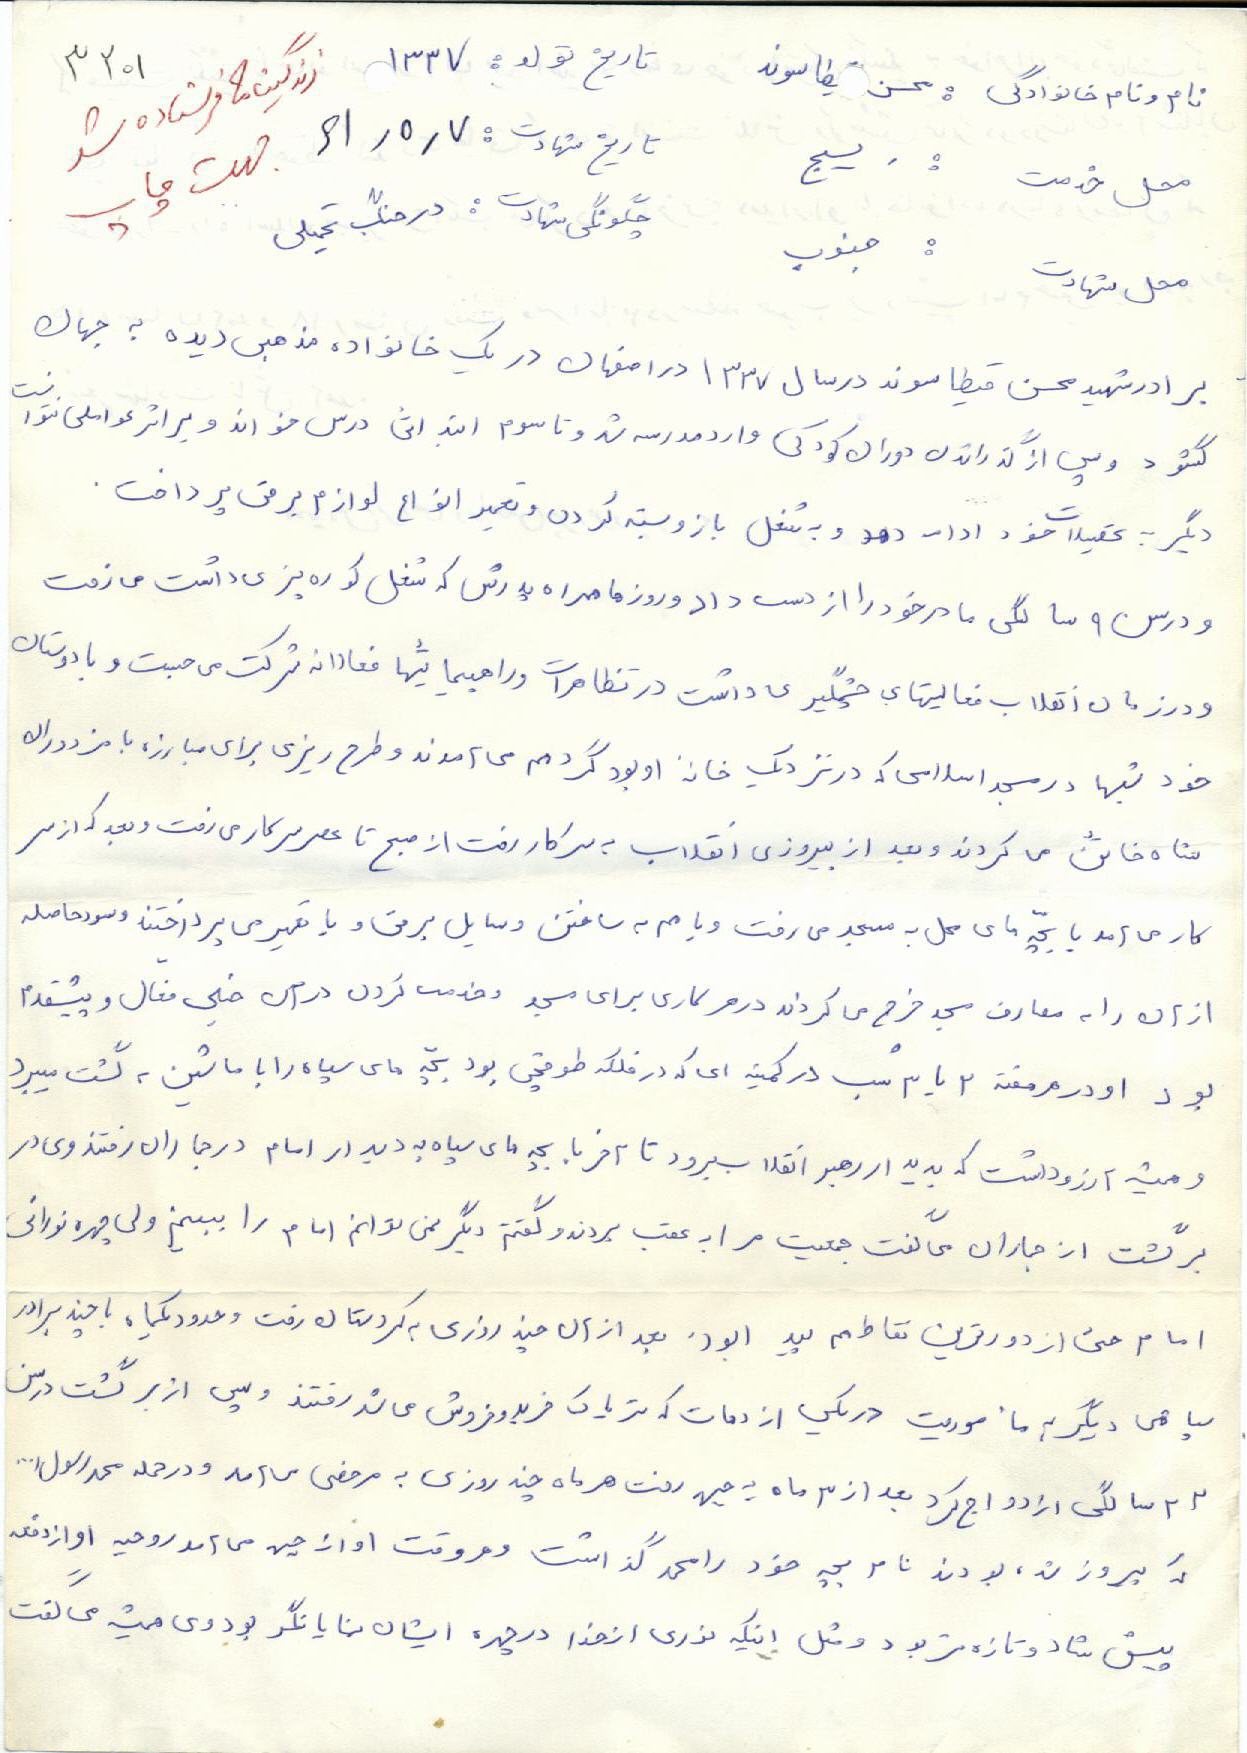 نام و نام خانوادگی : محسن قیطاسوند تاریخ تولد : ۱۳۳۷ ۳۲۰۱
زندگینامه فرستاده شد
جهت چاپ
محل خدمت : بسیج تاریخ شهادت : ۶۱/۵/۷
محل شهادت : جنوب چگونگی شهادت : در جنگ تحمیلی
برادر شهید محسن قیطاسوند در سال ۱۳۳۷ در اصفهان در یک خانواده مذهبی دیده به جهان
گشود و پس از گذراندن دوران کودکی وارد مدرسه شد و تا سوم ابتدائی درس خواند و بر اثر عواملی نتوانست
دیگر به تحصیلات خود ادامه دهد و به شغل باز و بسته کردن و تعمیر انواع لوازم برقی پرداخت .
و در سن ۹ سالگی مادر خود را از دست داد و روزها همراه پدرش که شغل کوره پزی داشت می رفت
و در زمان انقلاب فعالیتهای چشمگیری داشت در تظاهرات و راهپیمائیها فعالانه شرکت می جست و با دوستان
خود شبها در مسجد اسلامی که در نزدیک خانه او بود گرد هم می آمدند و طرح ریزی برای مبارزه با مزدوران
شاه خائن می کردند و بعد از پیروزی انقلاب به سر کار رفت از صبح تا عصر سر کار می رفت و بعد که از سر
کار می آمد با بچّه های محل به مسجد می رفت و یا هم به ساختن وسایل برقی و یا تعمیر می پرداختند و سود حاصله
از آن را به مصارف مسجد خرج می کردند در هر کاری برای مسجد و خدمت کردن در آن خیلی فعال و پیشقدم
بود او در هر هفته ۲ یا ۳ شب در کمیته ای که در فلکه طوقچی بود بچّه های سپاه را با ماشین به گشت میبرد
و همیشه آرزو داشت که بدیدار رهبر انقلاب برود تا آخر با بچه های سپاه به دیدار امام در جماران رفتند وی در
برگشت از جماران می گفت جمعیت مرا به عقب بردند و گفتم دیگر نمی توانم امام را ببینم ولی چهره نورانی
امام حتی از دورترین نقاط هم پیدا بود . بعد از آن چند روزی به کردستان رفت و حدود یکماه با چند برادر
سپاهی دیگر به مأموریت در یکی از دهات که تریاک خرید و فروش می شد رفتند و پس از برگشت در سن
۲۲ سالگی ازدواج کرد بعد از ۳ ماه به جبهه رفت هر ماه چند روزی به مرخصی می آمد و در حمله محمد رسول ا...
که پیروز شده بودند نام بچه خود را محمد گذاشت و هر وقت او از جبهه می آمد روحیه او از دفعه
پیش شاد و تازه تر بود و مثل اینکه نوری از خدا در چهره ایشان نمایانگر بود وی همیشه می گفت